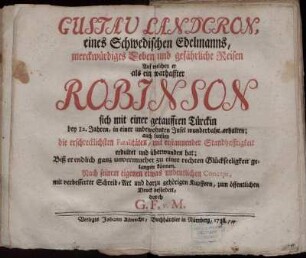 GUSTAV LANDCRON,
eines Schwedischen Edelmanns,
merckwürdiges Leben und gefährliche Reisen
Auf welchen er
als ein warhaffter
ROBINSON
sich mit einer getaufften Türckin
bey 12. Jahren, in einer unbewohnten Insel wunderbahr erhalten;
auch sonsten
die erschrecklichsten Fatalitäten, mit Standhafftigkeit
erduldet und überwunden hat;
Biß er endlich ganz unvermuthet zu einer rechten Glückseligkeit ge-
langen können.
Nach seinem eigenen etwas undeutlichen Concept,
mit verbesserter Schreib-Art und darzu gehörigen Kupffern, zum öffentlichen
Druck befördert,
durch
G. F. v. M.
Verlegts Johann Albrecht, Buchhändler in Nürnberg,